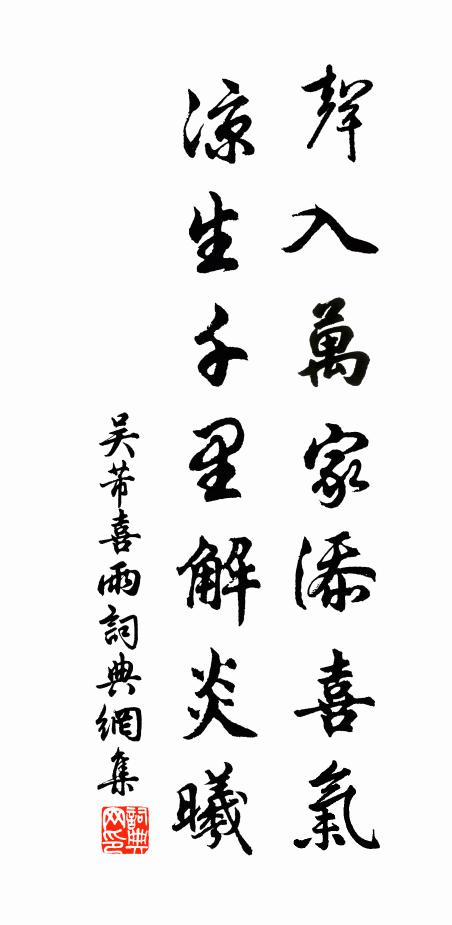 聲入萬家添喜氣
涼生千里解炎曦
吴芾喜雨詞典網集
詞典网印